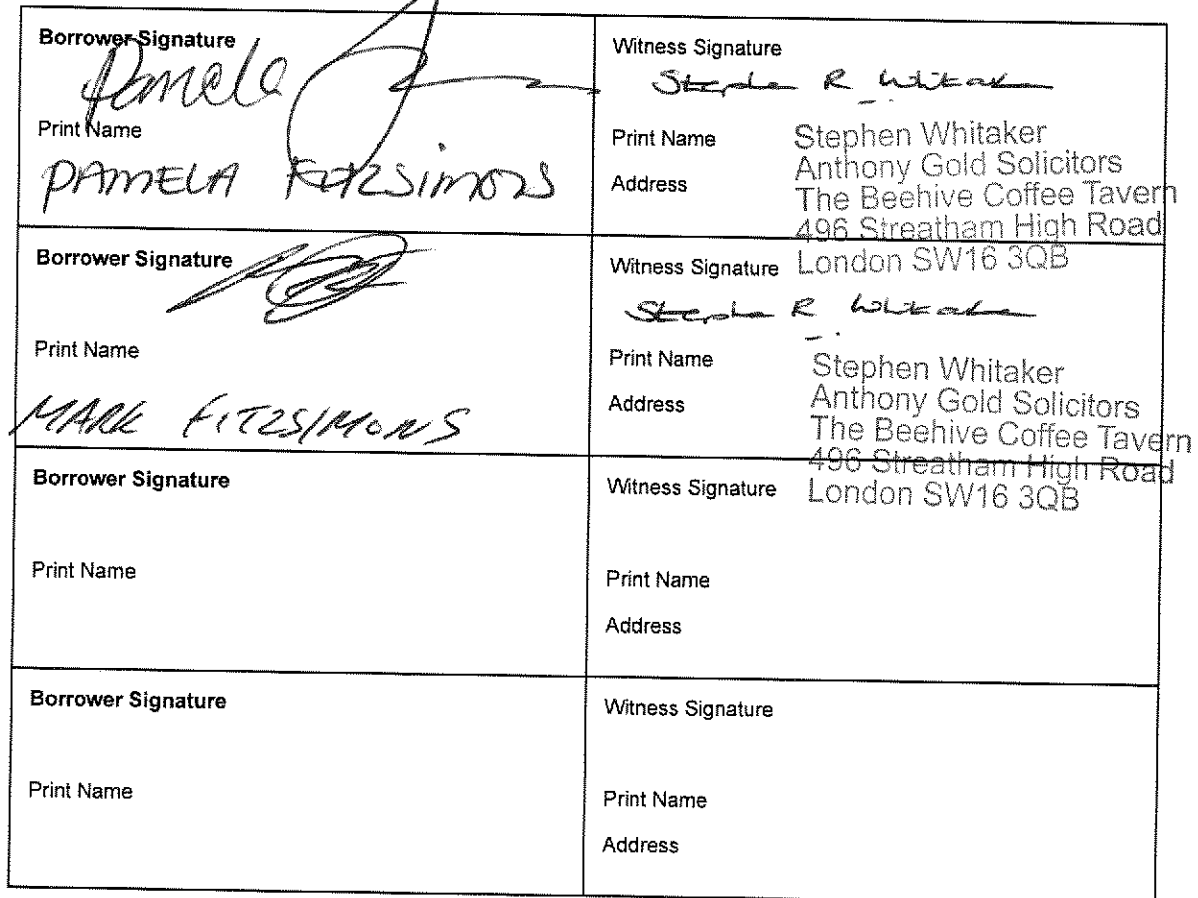 Borrower Signature
Pamela
Print Name
PAMELA FITZSIMONS
Witness Signature
Stephen R Whitaker
Print Name
Address
Stephen Whitaker
Anthony Gold Solicitors
The Beehive Coffee Tavern
496 Streatham High Road
London SW16 3QB
Borrower Signature
Print Name
MARK FITZSIMONS
Witness Signature
Stephen R Whitaker
Print Name
Address
Stephen Whitaker
Anthony Gold Solicitors
The Beehive Coffee Tavern
496 Streatham High Road
London SW16 3QB
Borrower Signature
Print Name
Witness Signature
Print Name
Address
Borrower Signature
Print Name
Witness Signature
Print Name
Address